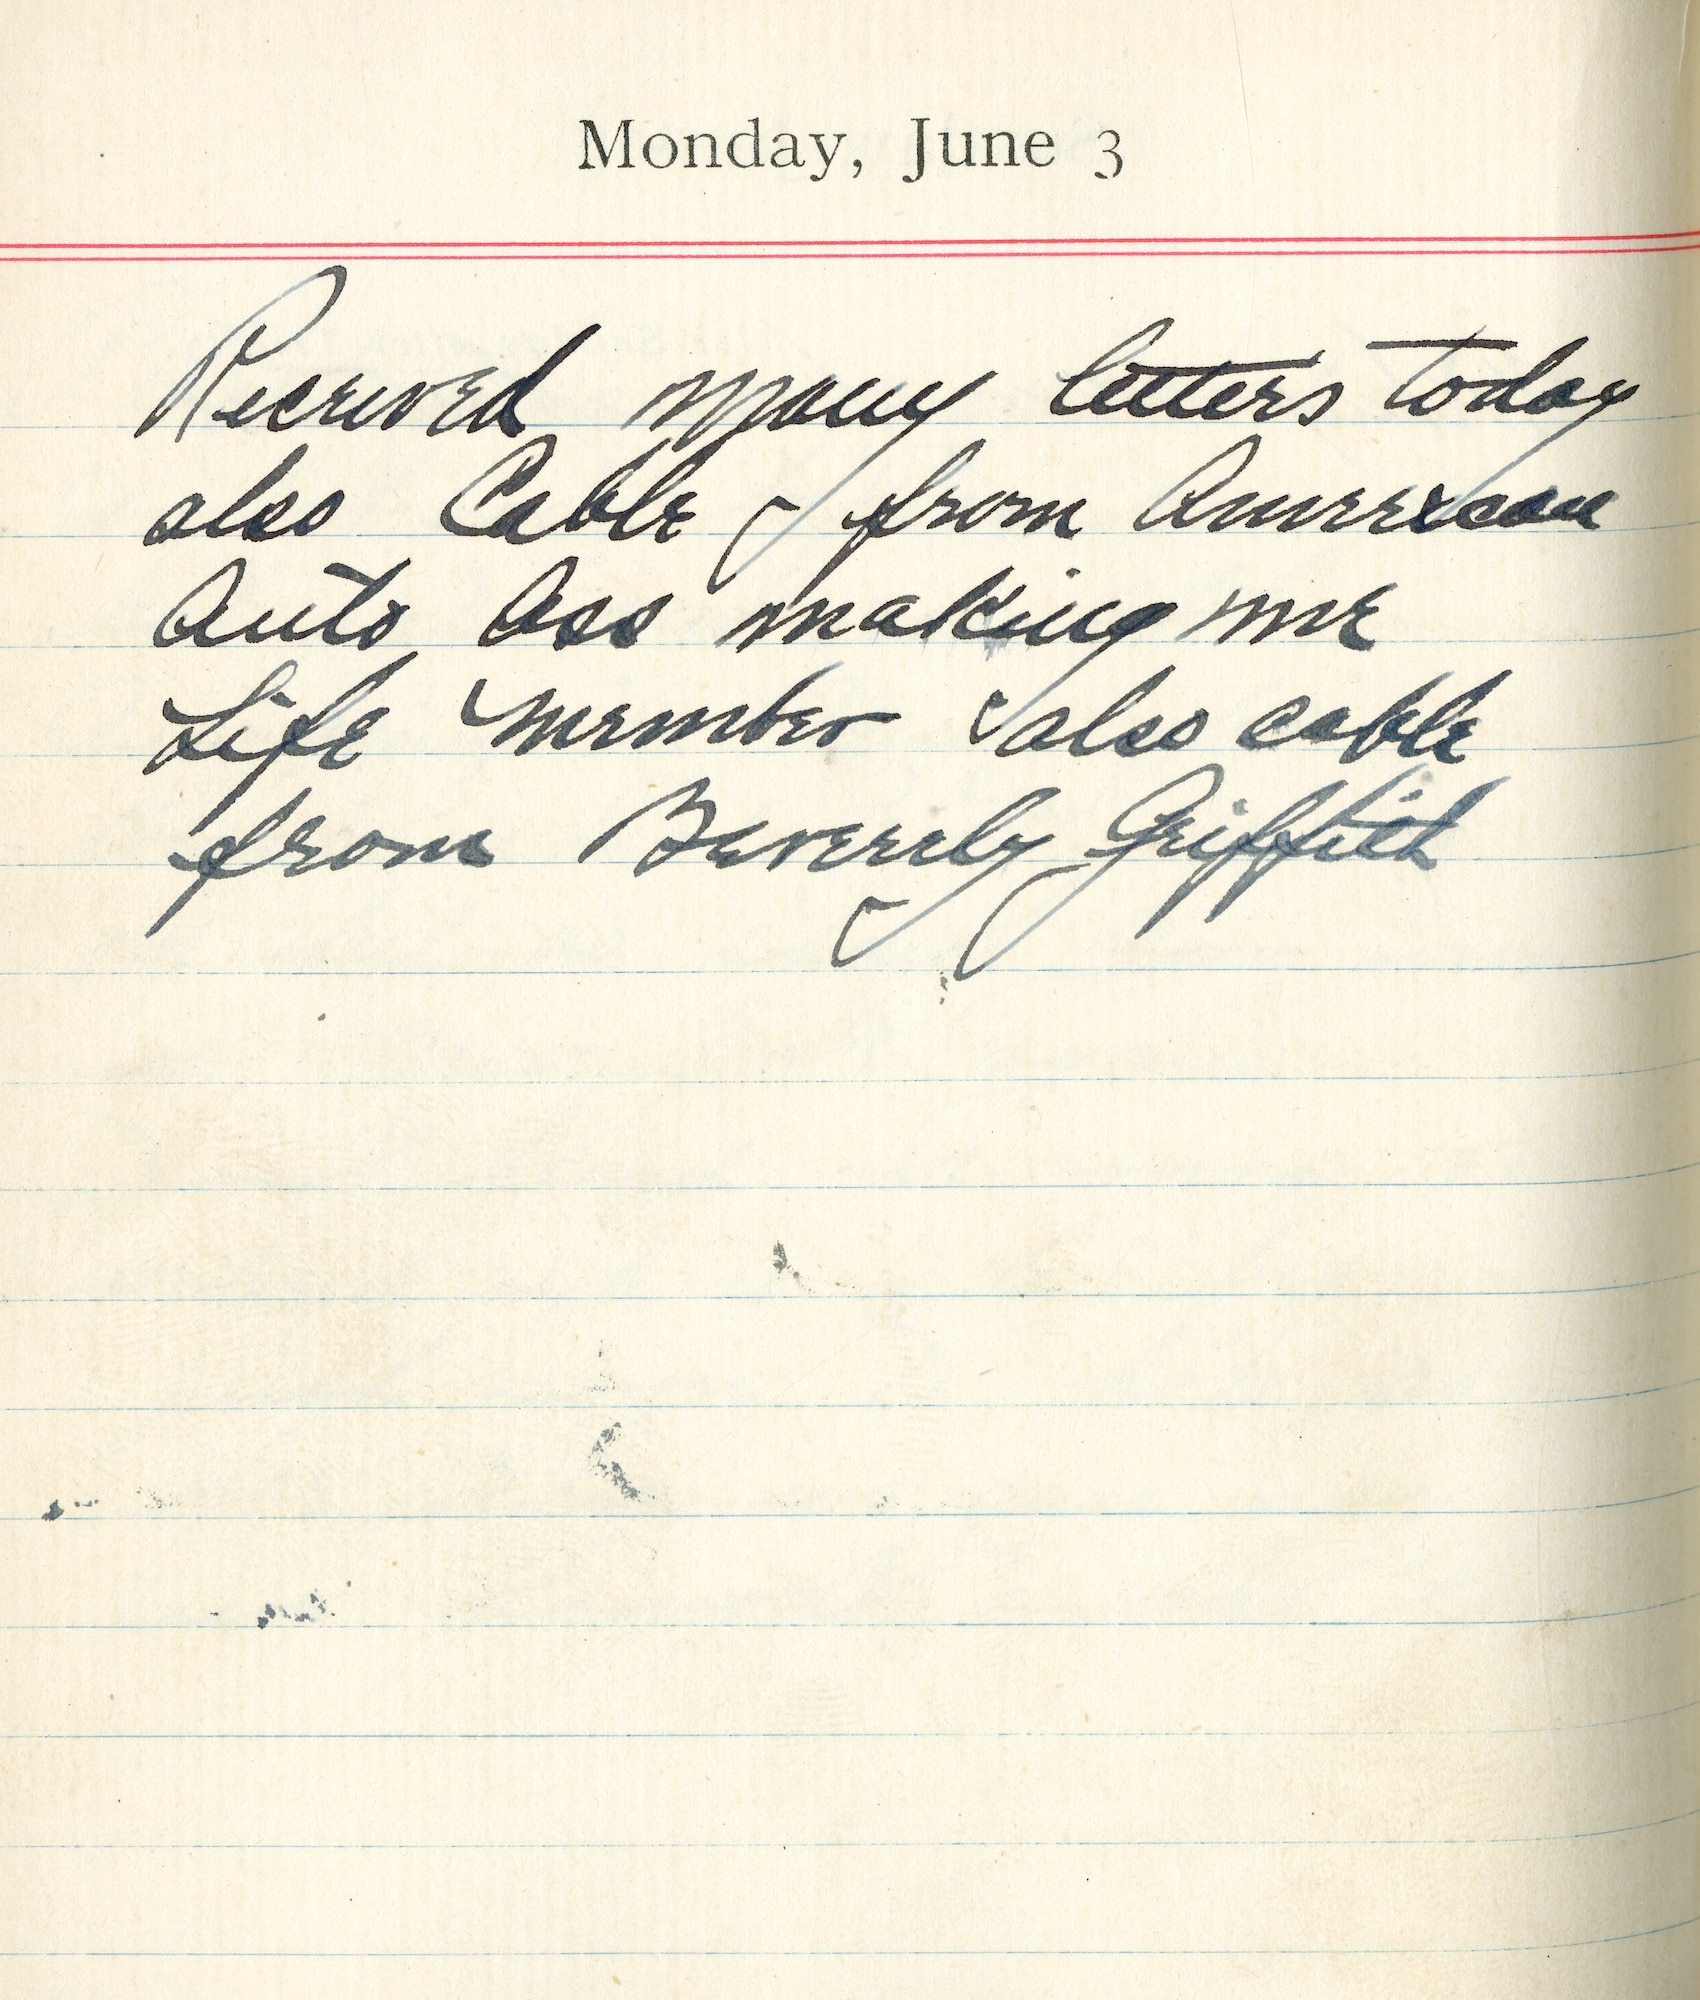 Monday, June 3
Received many letters today
also Cable from American
Auto Ass making me
Life member also cable
from Beverely Griffith